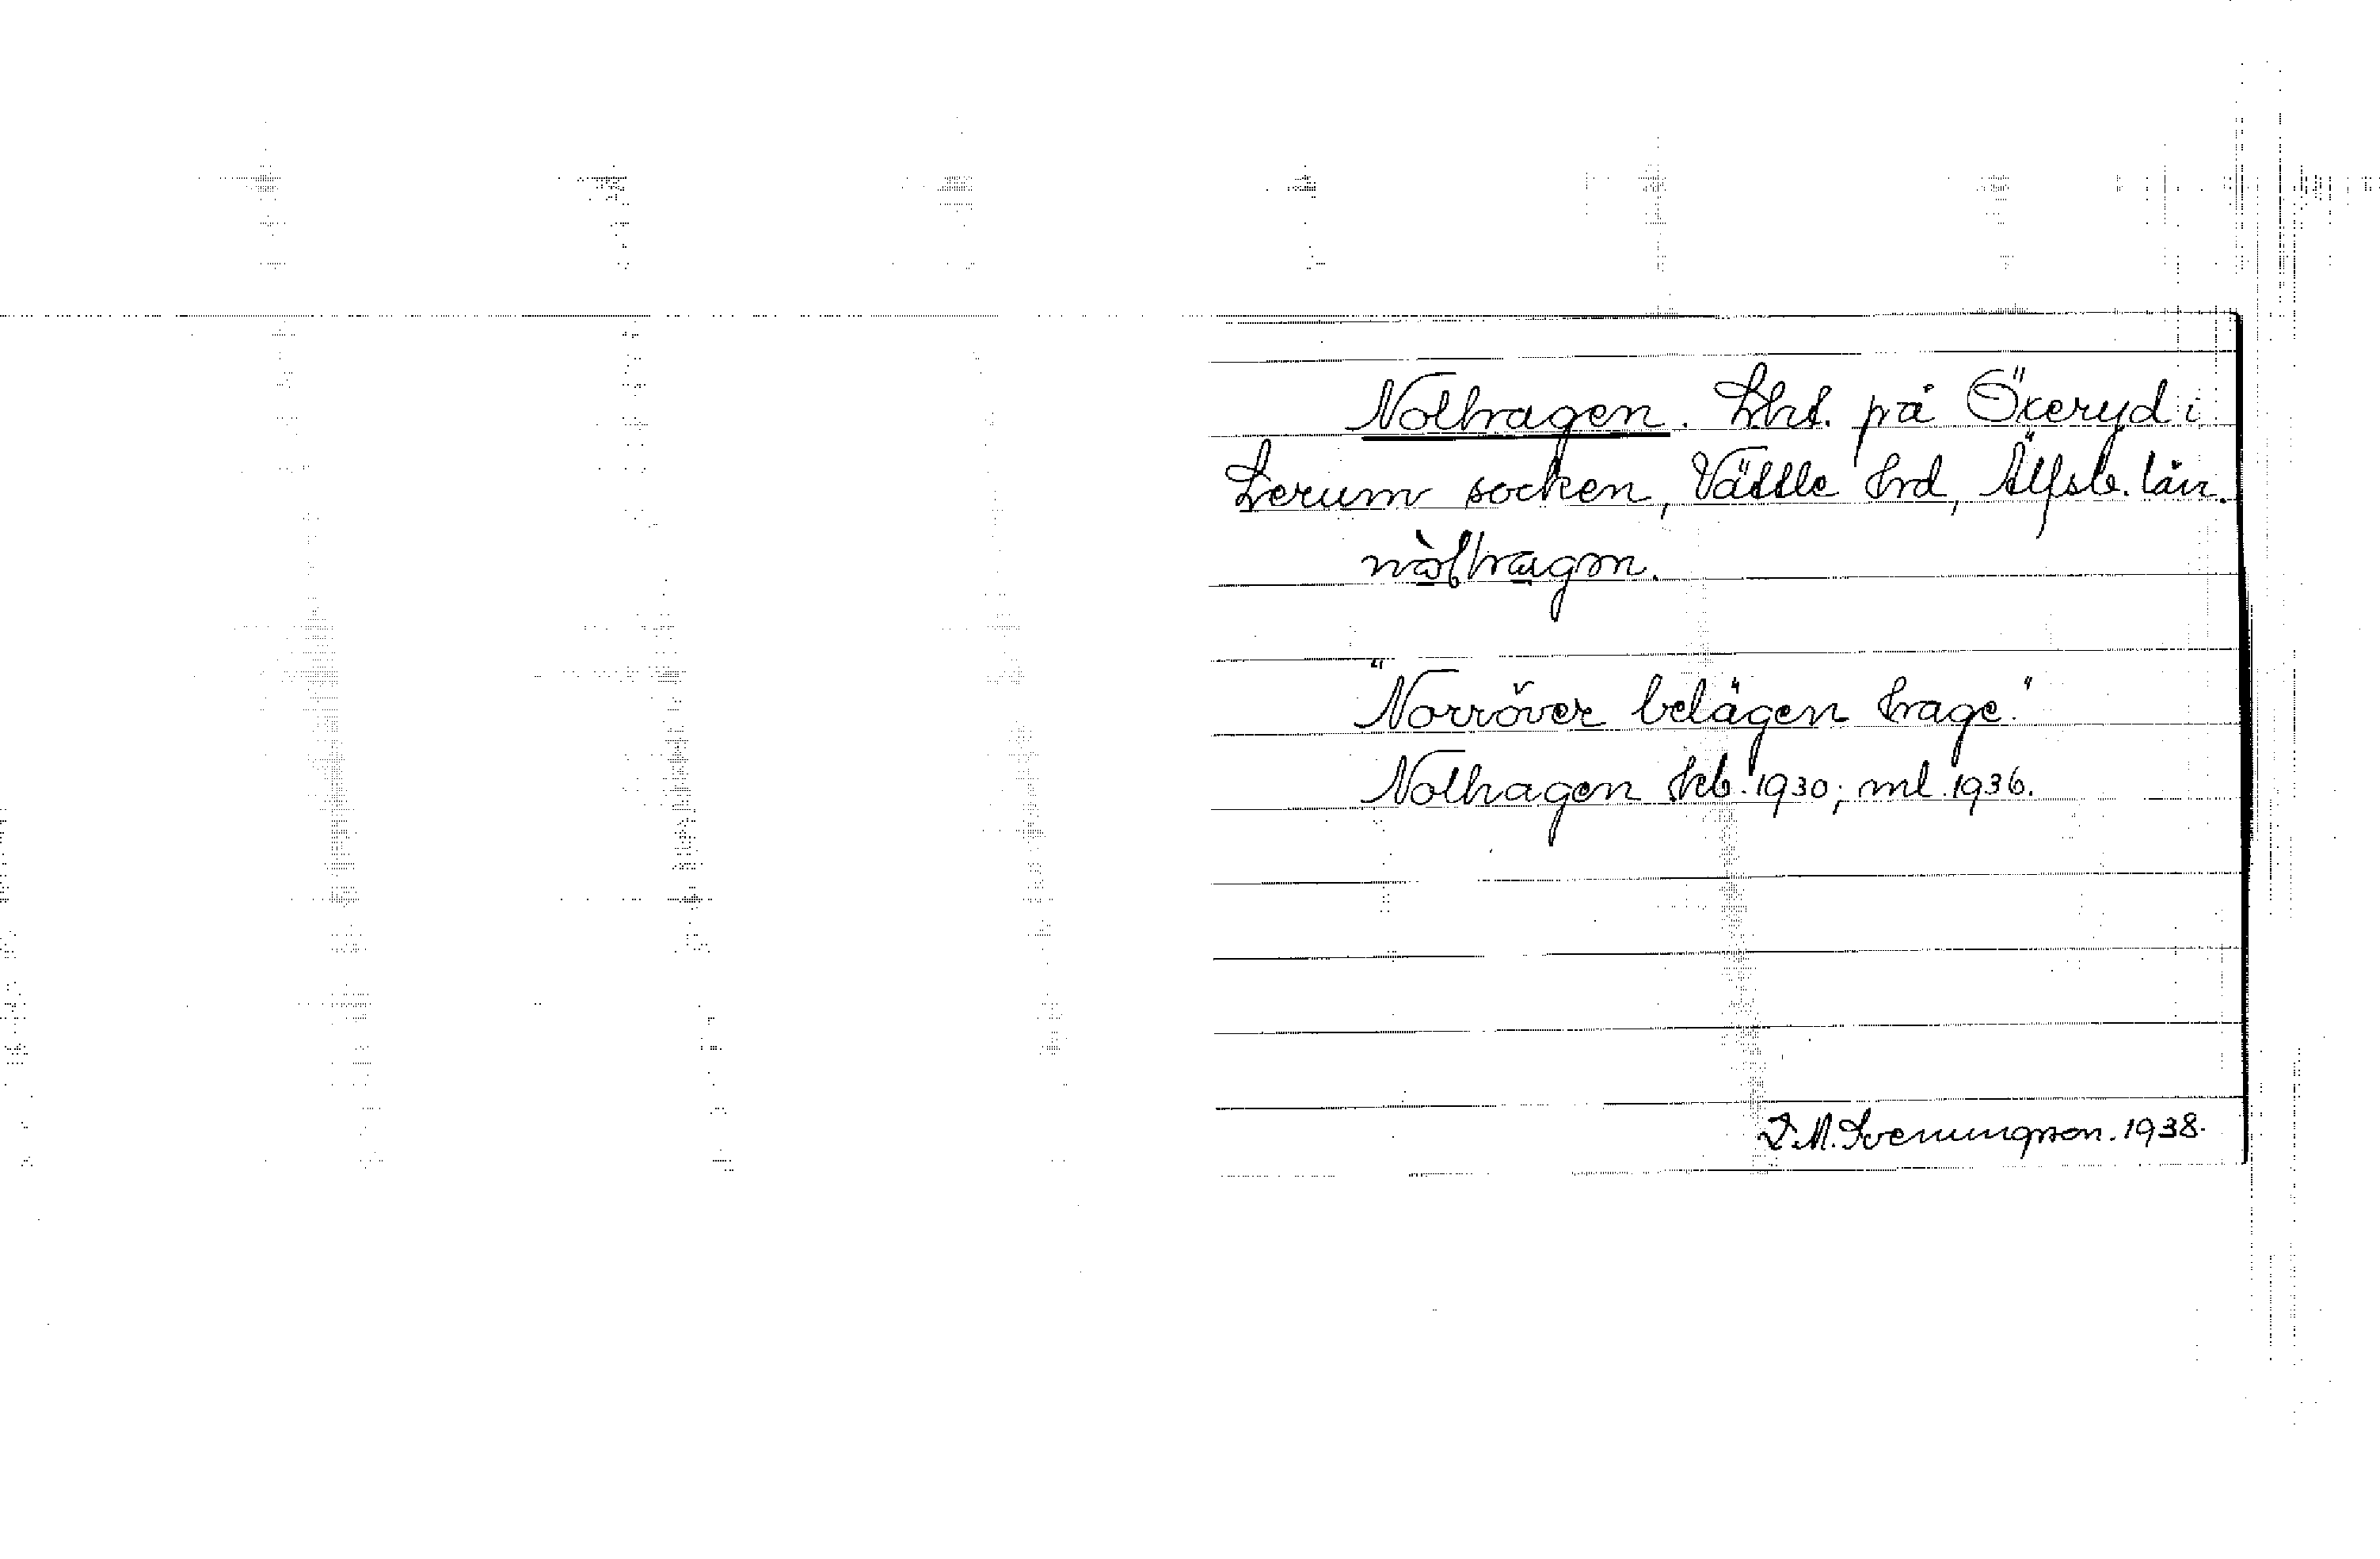 Nolhagen. Lht. på Ökeryd i
Lerum socken, Vättle hrd, Älfsb. län.
nòlhagən.
"Norröver belägen hage."
Nolhagen kb. 1930; ml. 1936.
D.M. Sveningson. 1938.